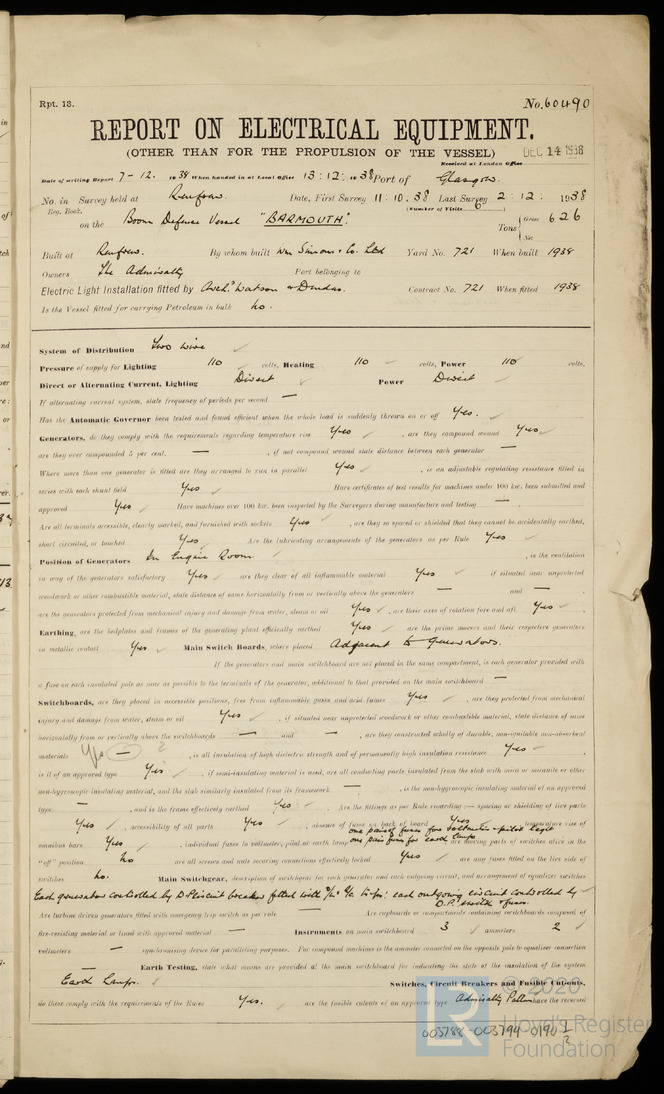 Rpt. 13.
No. 60490
REPORT ON ELECTRICAL EQUIPMENT.
(OTHER THAN FOR THE PROPULSION OF THE VESSEL)
DEC 14 1938
Received at London Office
Date of writing Report 7-12. 1938 When handed in at Local Office 13.12.1938 Port of Glasgow.
No. in Survey held at Renfrew. Date, First Survey 11:10.38 Last Survey 2:12:1938
Reg. Book. (Number of Visits 6)
on the Boom Defence Vessel "BARMOUTH". Tons Gross 626
Net
Built at Renfrew. By whom built Wm Simons & Co. Ltd Yard No. 721 When built 1938
Owners The Admiralty Port belonging to
Electric Light Installation fitted by Arch. Watson & Dundas. Contract No. 721 When fitted 1938
Is the Vessel fitted for carrying Petroleum in bulk No.
System of Distribution Two wire
Pressure of supply for Lighting 110 volts, Heating 110 volts, Power 110 volts,
Direct or Alternating Current, Lighting Direct Power Direct
If alternating current system, state frequency of periods per second —
Has the Automatic Governor been tested and found efficient when the whole load is suddenly thrown on or off Yes.
Generators, do they comply with the requirements regarding temperature rise Yes, are they compound wound Yes
are they over compounded 5 per cent. —, if not compound wound state distance between each generator —
Where more than one generator is fitted are they arranged to run in parallel Yes, is an adjustable regulating resistance fitted in
series with each shunt field Yes Have certificates of test results for machines under 100 kw. been submitted and
approved Yes Have machines over 100 kw. been inspected by the Surveyors during manufacture and testing —
Are all terminals accessible, clearly marked, and furnished with sockets Yes, are they so spaced or shielded that they cannot be accidentally earthed,
short circuited, or touched Yes Are the lubricating arrangements of the generators as per Rule Yes
Position of Generators In Engine Room, is the ventilation
in way of the generators satisfactory Yes are they clear of all inflammable material Yes if situated near unprotected
woodwork or other combustible material, state distance of same horizontally from or vertically above the generators — and —
are the generators protected from mechanical injury and damage from water, steam or oil Yes, are their axes of rotation fore and aft Yes
Earthing, are the bedplates and frames of the generating plant efficiently earthed Yes are the prime movers and their respective generators
in metallic contact Yes Main Switch Boards, where placed Adjacent to generators.
If the generators and main switchboard are not placed in the same compartment, is each generator provided with
a fuse on each insulated pole as near as possible to the terminals of the generator, additional to that provided on the main switchboard —
Switchboards, are they placed in accessible positions, free from inflammable gases and acid fumes Yes, are they protected from mechanical
injury and damage from water, steam or oil Yes, if situated near unprotected woodwork or other combustible material, state distance of same
horizontally from or vertically above the switchboards — and —, are they constructed wholly of durable, non-ignitable non-absorbent
materials Yes — ?, is all insulation of high dielectric strength and of permanently high insulation resistance Yes
is it of an approved type Yes, if semi-insulating material is used, are all conducting parts insulated from the slab with mica or micanite or other
non-hygroscopic insulating material, and the slab similarly insulated from its framework —, is the non-hygroscopic insulating material of an approved
type —, and is the frame effectively earthed Yes Are the fittings as per Rule regarding :— spacing or shielding of live parts
Yes, accessibility of all parts Yes, absence of fuses on back of board Yes temperature rise of
one pair of fuses for voltmeter & pilot light
omnibus bars Yes, individual fuses to voltmeter, pilot or earth lamp one pair fuses for earth lamps are moving parts of switches alive in the
"off" position No are all screws and nuts securing connections effectively locked Yes are any fuses fitted on the live side of
switches No. Main Switchgear, description of switchgear for each generator and each outgoing circuit, and arrangement of equalizer switches
Each generator controlled by D.P. circuit breaker fitted with trips: each outgoing circuit controlled by
D.P. switch & fuses.
Are turbine driven generators fitted with emergency trip switch as per rule — Are cupboards or compartments containing switchboards composed of
fire-resisting material or lined with approved material — Instruments on main switchboard 3 ammeters 2
voltmeters — synchronising device for paralleling purposes. For compound machines is the ammeter connected on the opposite pole to equaliser connection
— Earth Testing, state what means are provided at the main switchboard for indicating the state of the insulation of the system
Earth Lamps. Switches, Circuit Breakers and Fusible Cutouts,
do these comply with the requirements of the Rules Yes. are the fusible cutouts of an approved type Admiralty Pattern have the reversed
© 2020
LR
Lloyd's Register
Foundation
003788-003794-0190 1/2